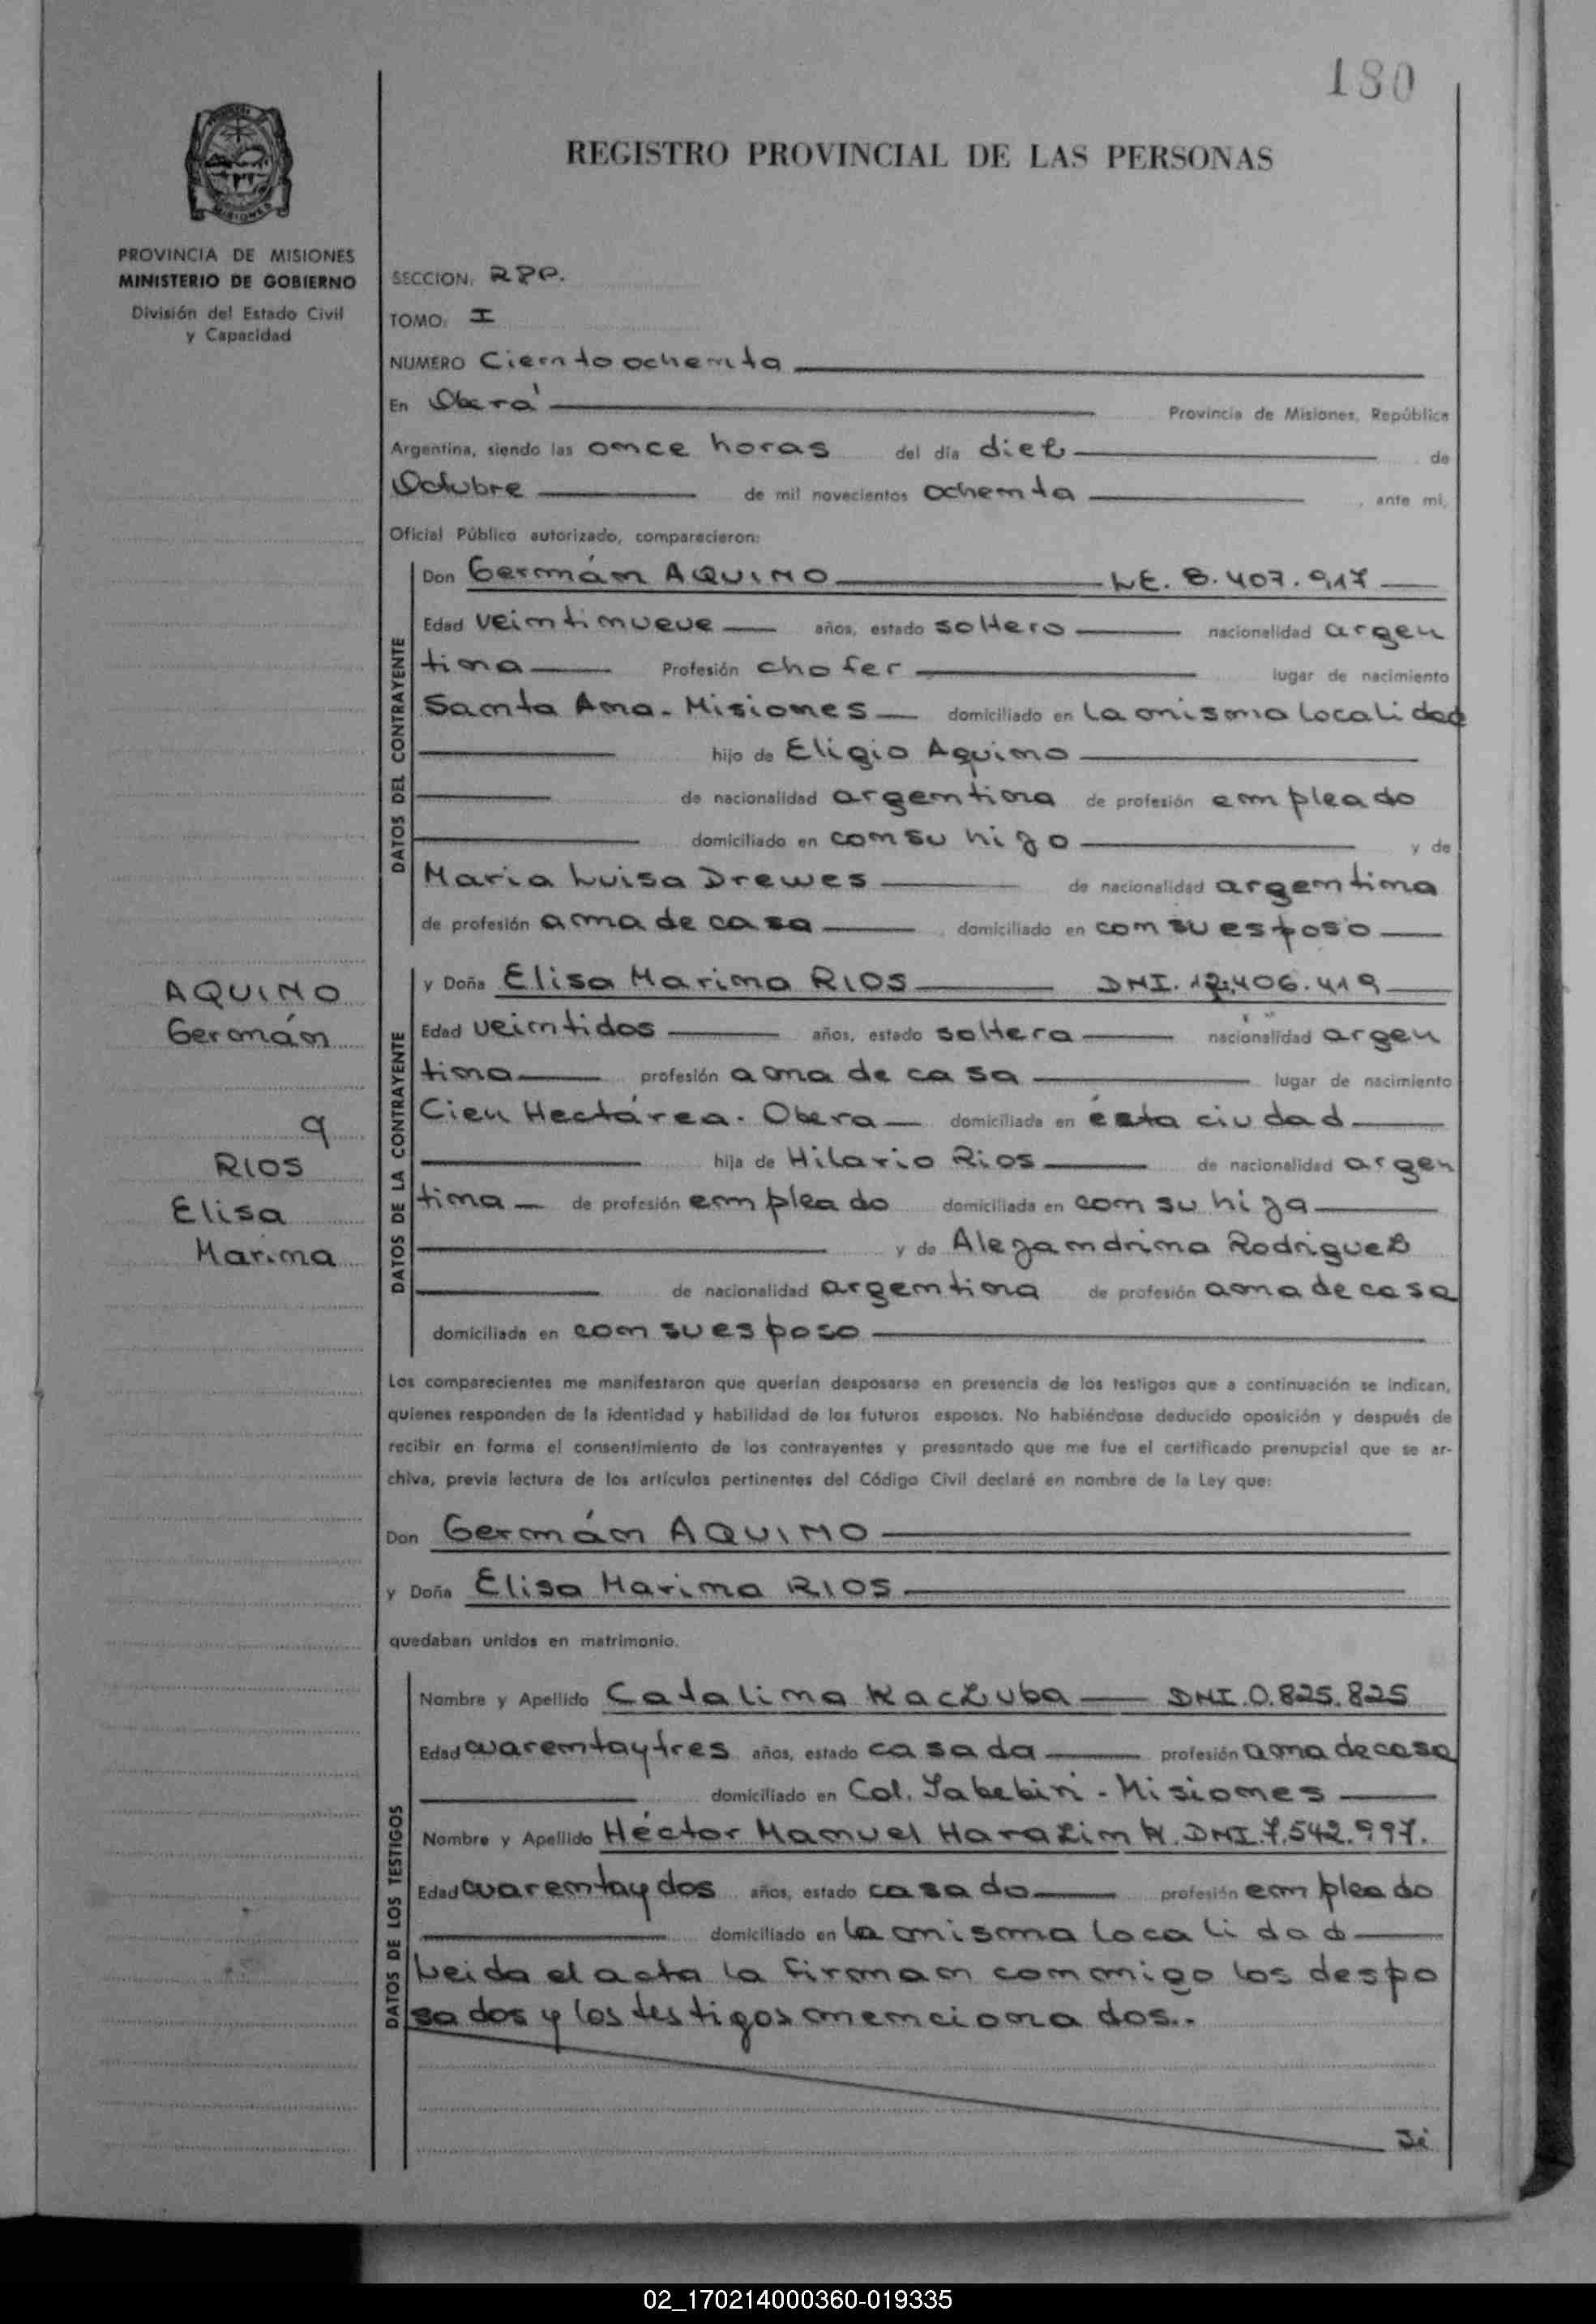 180
REGISTRO PROVINCIAL DE LAS PERSONAS
PROVINCIA DE MISIONES
MINISTERIO DE GOBIERNO
División del Estado Civil
y Capacidad
SECCION. RPP.
TOMO: I
NUMERO Ciento ochenta
En Oberá Provincia de Misiones, República
Argentina, siendo las once horas del día diez de
Octubre de mil novecientos ochenta, ante mi,
Oficial Público autorizado, comparecieron:
DATOS DEL CONTRAYENTE
Don Germán AQUINO L.E. 8.407.917
Edad veintinueve años, estado soltero nacionalidad argen
tina Profesión chofer lugar de nacimiento
Santa Ana - Misiones domiciliado en la misma localidad
hijo de Eligio Aquino
de nacionalidad argentina de profesión empleado
domiciliado en con su hijo y de
Maria Luisa Drewes de nacionalidad argentina
de profesión ama de casa, domiciliado en con su esposo
AQUINO
Germán
y
RIOS
Elisa
Marina
DATOS DE LA CONTRAYENTE
y Doña Elisa Marina RIOS DNI. 12.406.419
Edad veintidos años, estado soltera nacionalidad argen
tina profesión ama de casa lugar de nacimiento
Cien Hectárea - Obera domiciliada en ésta ciudad
hija de Hilario Rios de nacionalidad argen
tina de profesión empleado domiciliada en con su hija
y de Alejandrina Rodriguez
de nacionalidad argentina de profesión ama de casa
domiciliada en con su esposo
Los comparecientes me manifestaron que querían desposarse en presencia de los testigos que a continuación se indican,
quienes responden de la identidad y habilidad de los futuros esposos. No habiéndose deducido oposición y después de
recibir en forma el consentimiento de los contrayentes y presentado que me fue el certificado prenupcial que se ar-
chiva, previa lectura de los artículos pertinentes del Código Civil declaré en nombre de la Ley que:
Don Germán AQUINO
y Doña Elisa Marina RIOS
quedaban unidos en matrimonio.
DATOS DE LOS TESTIGOS
Nombre y Apellido Catalina Kaczuba DNI. 0.825.825
Edad cuarentaytres años, estado casada profesión ama de casa
domiciliado en Col. Yabebiri - Misiones
Nombre y Apellido Héctor Manuel Harazim K. DNI. 7.542.997.
Edad cuarentaydos años, estado casado profesión empleado
domiciliado en la misma localidad
Leida el acta la firman conmigo los despo
sados y los testigos mencionados..
02_170214000360-019335